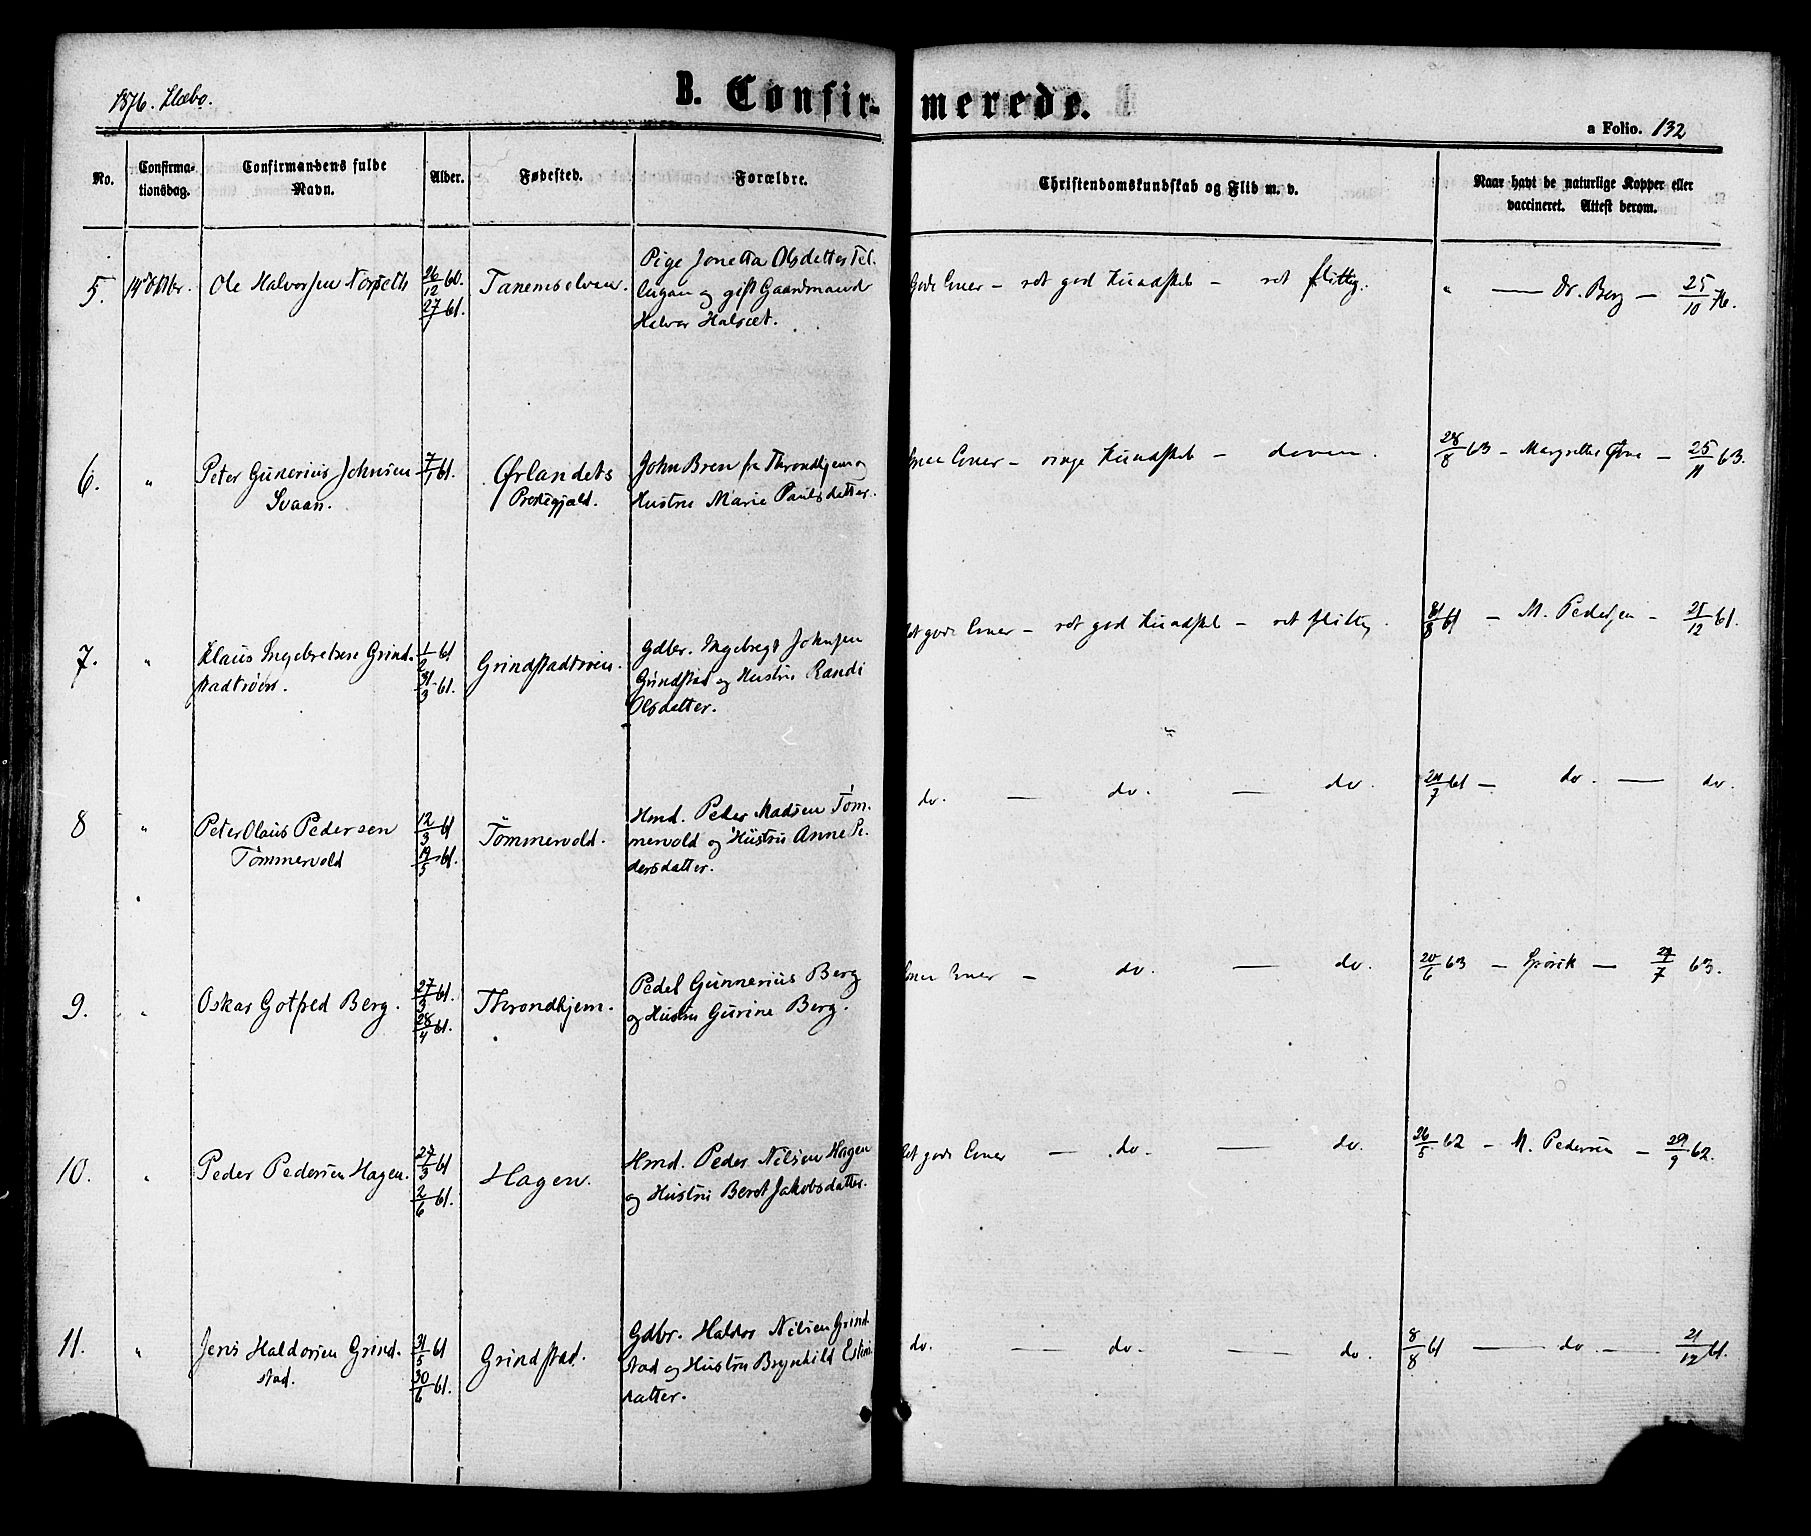 1876. Klæbo.
B. Confirmerede.
a Folio. 132
No.
Confirmationsdag.
Confirmandens fulde Navn.
Alder.
Fødested.
Forældre.
Christendomskundskab og Flid m. v.
Naar havt de naturlige Kopper eller
vaccineret. Attest derom.
5.
Ole Halvorsen
26/12 60.
27/7 61.
Pige Jonetta Olsdatter
og gift Gaardmand
Halvor Halset.
Gode Evner – ret god Kundskab – ret flittig.
" — Dr. Berg — 25/10 76.
6. "
Peter Gunerius Johnsen
Svaan.
7/1 61.
Ørlandets
Prestegjæld.
John Bren fra Throndhjem og
Hustru Marie Paulsdatter.
Evner – ringe Kundskab – doven.
28/8 63 – Margrethe – 25/11 63.
7. "
Klaus Ingebretsen Grind-
stadtrøen.
1/2 61
31/3 61.
Grindstadtrøen.
Gdbr. Ingebregt Johnsen
Grindstad og Hustru Randi
Olsdatter.
Ret gode Evner – ret god Kundskab – ret flittig.
61 – M. Pedersen – 21/12 61.
8 "
Peter Olaus Pedersen
Tømmervold
12/3 61
19/5 61.
Tømmervold.
Hmd. Peder Madsen Tøm-
mervold og Hustru Anne Pe-
dersdatter.
do. — do. — do.
24/7 61 – do. — do.
9. "
Oskar Gotfred Berg.
27/3 61.
28/4 61.
Throndhjem.
Pedel Gunnerius Berg
og Hustru Gurine Berg.
Evner – do. — do.
20/6 63 – – 27/7 63.
10. "
Peder Pedersen Hagen.
27/3 61
2/6 61.
Hagen.
Hmd. Peder Nilsen Hagen
og Hustru Beret Jakobsdatter.
Ret gode Evner – do. — do.
26/5 62 – M. Pedersen – 29/9 62.
11. "
Jens Haldorsen Grind-
stad.
31/5 61
30/6 61.
Grindstad.
Gdbr. Haldor Nilsen Grind-
stad og Hustru Brynhild
datter.
do. — do. — do.
8/8 61 — do. — 21/12 61.